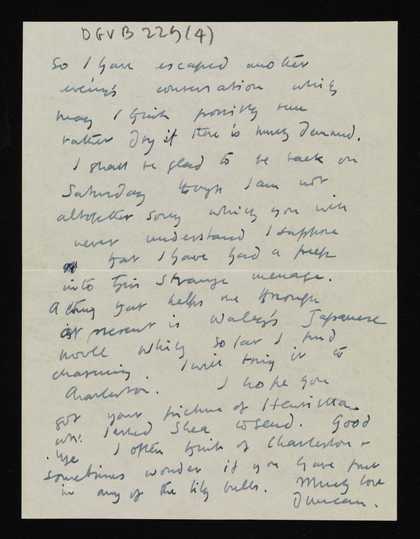 DGVB 225(4)
So I have escaped another
evening's conversation which
may I think possibly run
rather dry if there is much demand.
I shall be glad to be back on
Saturday though I am not
altogether sorry which you will
never understand I suppose
that I have had a peep
into this strange menage.
A thing that helps me through
at present is Waley's Japanese
novel which so far I find
charming. I will bring it to
Charleston. I hope you
got your picture of Henrietta
I asked Shea to send. Good
bye I often think of Charleston &
sometimes wonder if you have put
in any of the lily bulbs. Much love
Duncan.